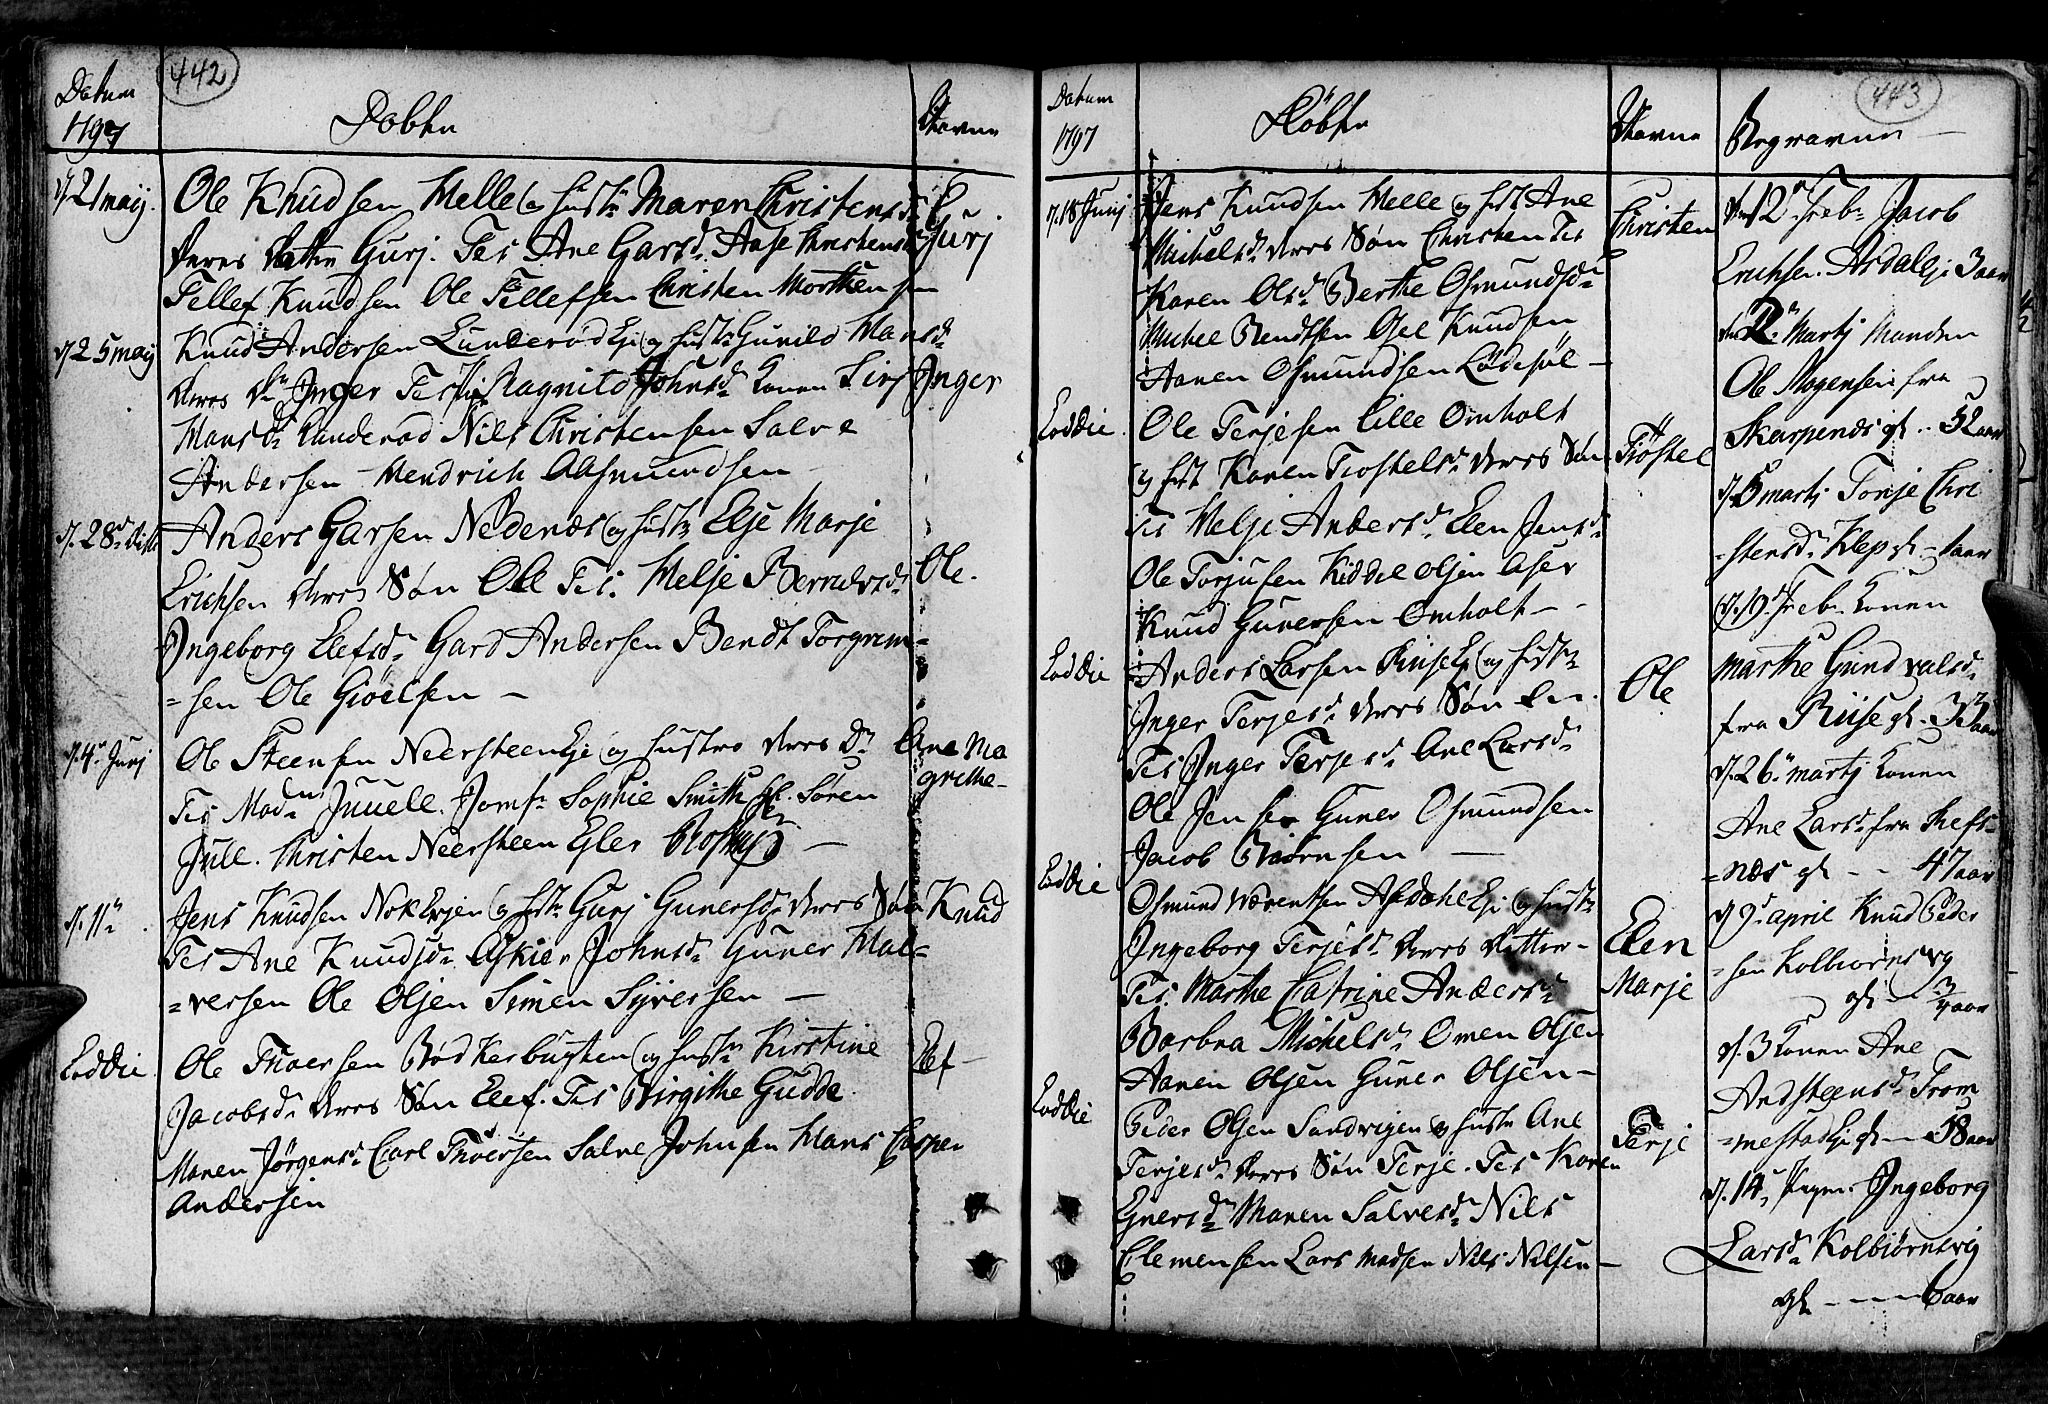 442
Datum
1797
Døbte
Navne
d. 21 maij.
Ole Knudsen Helle og hustr Maren Christensd
Deres datter Gurj. Tes Ane Garsd Aase Christensd
Gurj
Tellef Knudsen Ole Tellefsen Christen Morthensen
d. 25 maij
Knud Andersen Lunderod Eje og hustr Gunild Hansd
deres Dr Inger Tes Ragnild Johnsd konen Sirj
Inger
Hansd Lunderod Nils Christensen Salve
Andersen Hendrich Aasmundsen
d. 28 dito
Anders Garsen Nedenæs og hustr Elje Marje
Erichsen deres Søn Ole Tes. Helje Berrulvsd
Ole.
Ingeborg Elefsd Gard Andersen Bendt Torgrim=
=sen Ole Gioelsen –
d. 4 Junj
Ole Steensen Neersteen Eje og hustro deres Dr
Ane Ma
grethe
Tes Madn Juuell Jomfr Sophie Smith Søren
Jull. Christen Neersteen Esler –
d. 11
Jens Knudsen Nok Eyjen og hstr Gurj Gunersd deres Søn
Knud
Tes Ane Knudsd Askier Johnsd Guner Hal=
=versen Ole Olsen Simen Syversen –
Eoddie
Ole Thoersen Bødkerbugten og hustr Kirstine
Elef –
Jacobsd deres Søn Elef. Tes Birgithe Gudde
Maren Jørgensd Carl Thoersen Salve Johnsen Hans Casper
Andersen
443
Datum
1797
Døbte
Navne
Begravne –
d. 18 Junj
Jens Knudsen Helle og hst Ane
Christen
Michelsd deres Søn Christen Tes
Karen Olsd Berthe Osmundsd
Michel Bendtsen Ojel Knudsen
Aanen Osmundsen Lødesøl –
Eoddie
Ole Terjesen Lille Omholt
og hst Karen Tiostelsd deres Søn
Tiøstel
Tes Helje Andersd Elen Jensd
Ole Torjusen Kiddel Olsen Aser
Knud Gunersen Omholt –
Eoddie
Anders Larsen Riise Eje og hustr
Ole
Inger Terjesd deres Søn
Tes Inger Terjesd Ane Larsd
Ole Jensen Guner Osmundsen
Jacob Biørnsen –
Eoddie
Osmund Værentsen Asdahl Eje og hustr
Ingeborg Terjesd deres datter –
Elen
Marje
Tes. Marthe Catrine Andersd
Barbra Michelsd Omen Olsen
Aanen Olsen Guner Olsen –
Eoddie
Peder Olsen Sandvigen og hustr Ane
Terje
Terjesd deres Søn Terje. Tes Karen
Egnersd Maren Salvesd Nils
Clemensen Lars Madsen Nils Nilsen –
den 12 Febr Jacob
Erichsen Asdal Eje 3 aar
den 2 Martj Manden
Ole Mogensen fra
Skarpenæs gl .. 52 aar
d. 5 martj Torje Chri
=stensd Klep gl – 1 aar
d. 19 Febr Konen
Marthe Gundvalsd
fra Riise gl. 33 aar
d. 26 martj Konen
Ane Larsd fra Refs=
=næs gl – – 47 aar
d. 9 april Knud Peder
=sen Kolbiørnsvig
gl – 3/4 aar
d. 3 Konen Ane
Andsteensd Trom
=mestad Eje gl – 58 aar
d. 14 Ingeborg
Larsd Kolbiørnsvig
gl – – – 6 aar